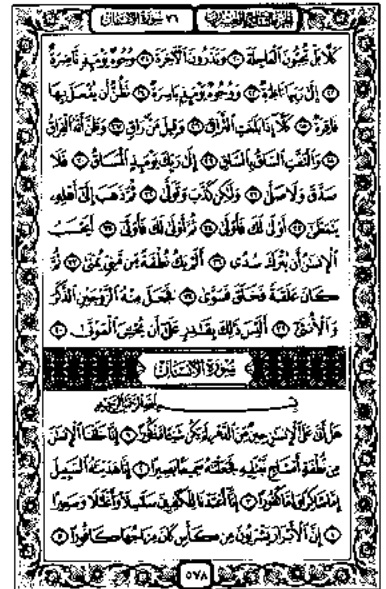 الجزء التاسع والعشرون ٧٦ سورة الإنسان
كَلَّا بَلْ تُحِبُّونَ الْعَاجِلَةَ ٢٠ وَتَذَرُونَ الْآخِرَةَ ٢١ وُجُوهٌ يَوْمَئِذٍ نَاضِرَةٌ
٢٢ إِلَىٰ رَبِّهَا نَاظِرَةٌ ٢٣ وَوُجُوهٌ يَوْمَئِذٍ بَاسِرَةٌ ٢٤ تَظُنُّ أَنْ يُفْعَلَ بِهَا
فَاقِرَةٌ ٢٥ كَلَّا إِذَا بَلَغَتِ التَّرَاقِيَ ٢٦ وَقِيلَ مَنْ رَاقٍ ٢٧ وَظَنَّ أَنَّهُ الْفِرَاقُ
٢٨ وَالْتَفَّتِ السَّاقُ بِالسَّاقِ ٢٩ إِلَىٰ رَبِّكَ يَوْمَئِذٍ الْمَسَاقُ ٣٠ فَلَا
صَدَّقَ وَلَا صَلَّىٰ ٣١ وَلَٰكِنْ كَذَّبَ وَتَوَلَّىٰ ٣٢ ثُمَّ ذَهَبَ إِلَىٰ أَهْلِهِ
يَتَمَطَّىٰ ٣٣ أَوْلَىٰ لَكَ فَأَوْلَىٰ ٣٤ ثُمَّ أَوْلَىٰ لَكَ فَأَوْلَىٰ ٣٥ أَيَحْسَبُ
الْإِنْسَانُ أَنْ يُتْرَكَ سُدًى ٣٦ أَلَمْ يَكُ نُطْفَةً مِنْ مَنِيٍّ يُمْنَىٰ ٣٧ ثُمَّ
كَانَ عَلَقَةً فَخَلَقَ فَسَوَّىٰ ٣٨ فَجَعَلَ مِنْهُ الزَّوْجَيْنِ الذَّكَرَ
وَالْأُنْثَىٰ ٣٩ أَلَيْسَ ذَٰلِكَ بِقَادِرٍ عَلَىٰ أَنْ يُحْيِيَ الْمَوْتَىٰ ٤٠
سورة الإنسان
بِسْمِ اللَّهِ الرَّحْمَٰنِ الرَّحِيمِ
هَلْ أَتَىٰ عَلَى الْإِنْسَانِ حِينٌ مِنَ الدَّهْرِ لَمْ يَكُنْ شَيْئًا مَذْكُورًا ١ إِنَّا خَلَقْنَا الْإِنْسَانَ
مِنْ نُطْفَةٍ أَمْشَاجٍ نَبْتَلِيهِ فَجَعَلْنَاهُ سَمِيعًا بَصِيرًا ٢ إِنَّا هَدَيْنَاهُ السَّبِيلَ
إِمَّا شَاكِرًا وَإِمَّا كَفُورًا ٣ إِنَّا أَعْتَدْنَا لِلْكَافِرِينَ سَلَاسِلَا وَأَغْلَالًا وَسَعِيرًا
٤ إِنَّ الْأَبْرَارَ يَشْرَبُونَ مِنْ كَأْسٍ كَانَ مِزَاجُهَا كَافُورًا ٥
٥٧٨